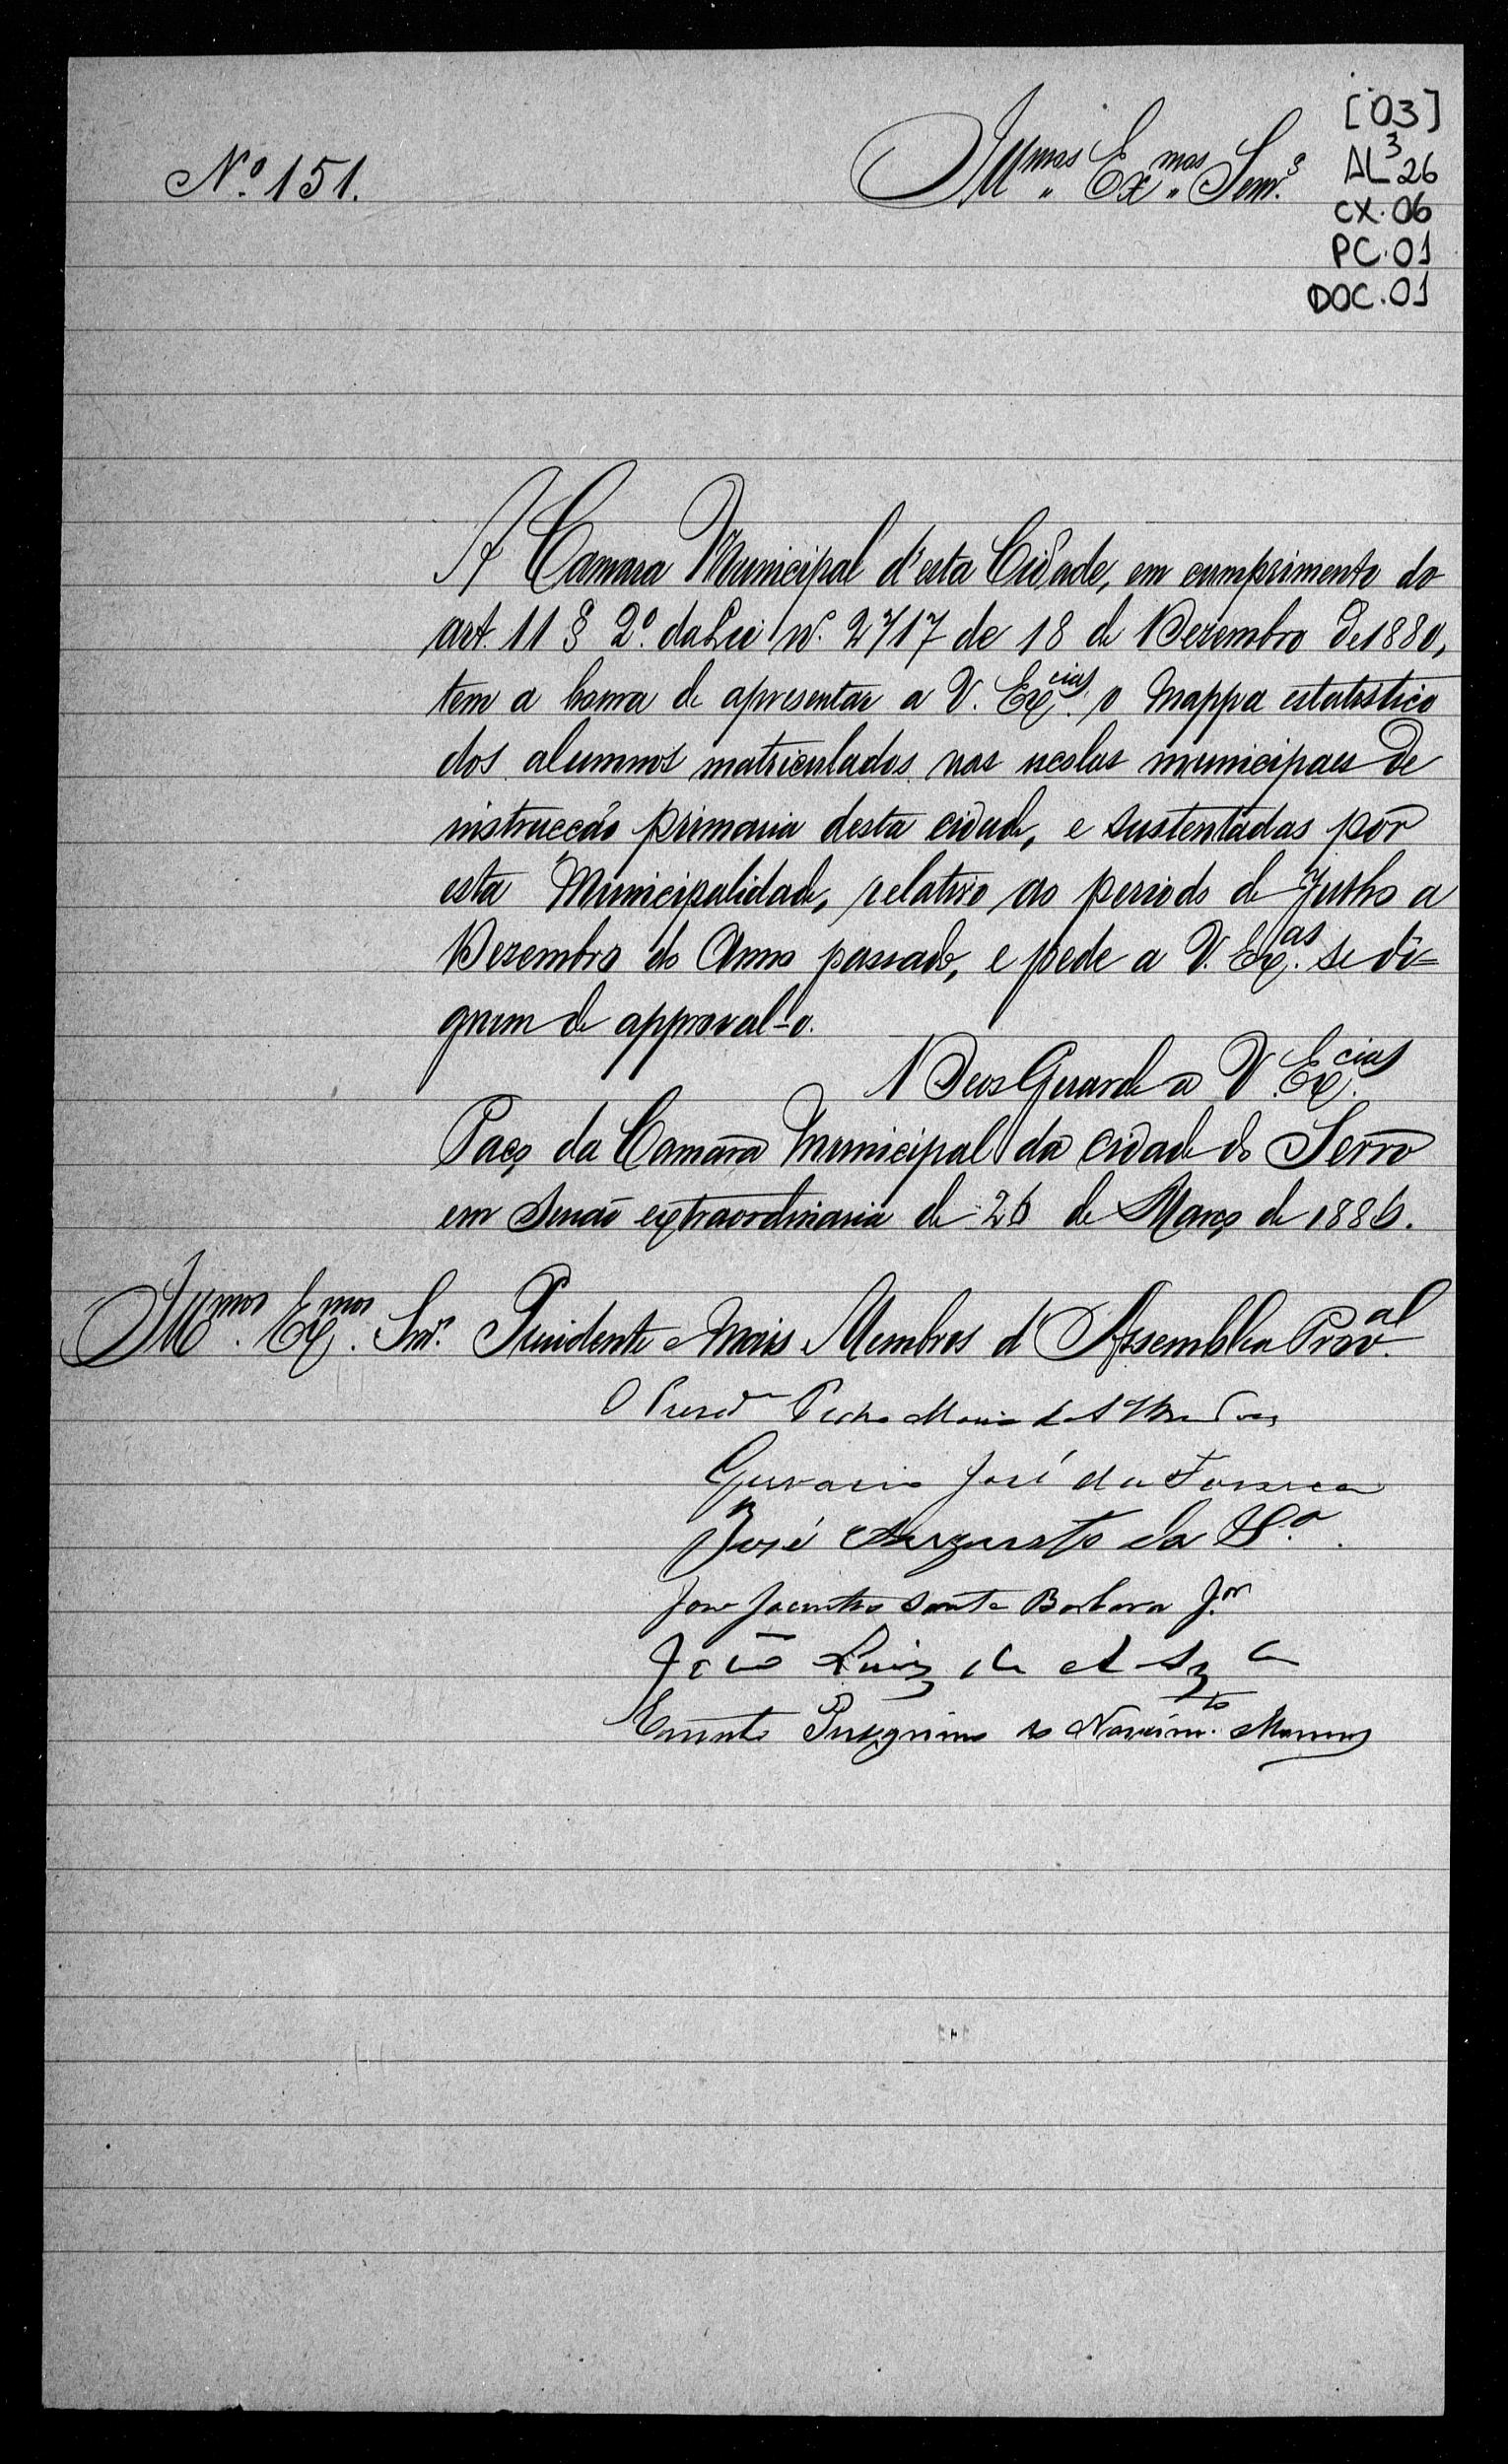 [03]
AL³26
CX.06
PC.01
DOC.01
Nº 151.
Illmos Exmos Senrs
A Camara Municipal d'esta Cidade, em cumprimento do
art. 11 § 2º. da Lei nº. 2717 de 18 de Dezembro de 1880,
tem a honra de apresentar a V. Excias. o Mappa estatistico
dos alumnos matriculados nas escolas municipaes de
instrucção primaria desta cidade, e sustentadas por
esta Municipalidade, relativo ao periodo de Julho a
Dezembro do Anno passado, e pede a V. Exas. se di=
gnem de approval-o.
Deos Guarde a V. Excias.
Paço da Camara Municipal da cidade do Serro
em sessão extraordinaria de 26 de Março de 1886.
Illmos. Exmos. Snrs. Presidente e Mais Membros d'Assemblea Proval.
O Presde Pedro Maria de
Gervasio José da Fonseca
José Augusto da Sª.
José Jacintho Santa Barbara Jor
João Luiz de
Peregrino do Nascimto.